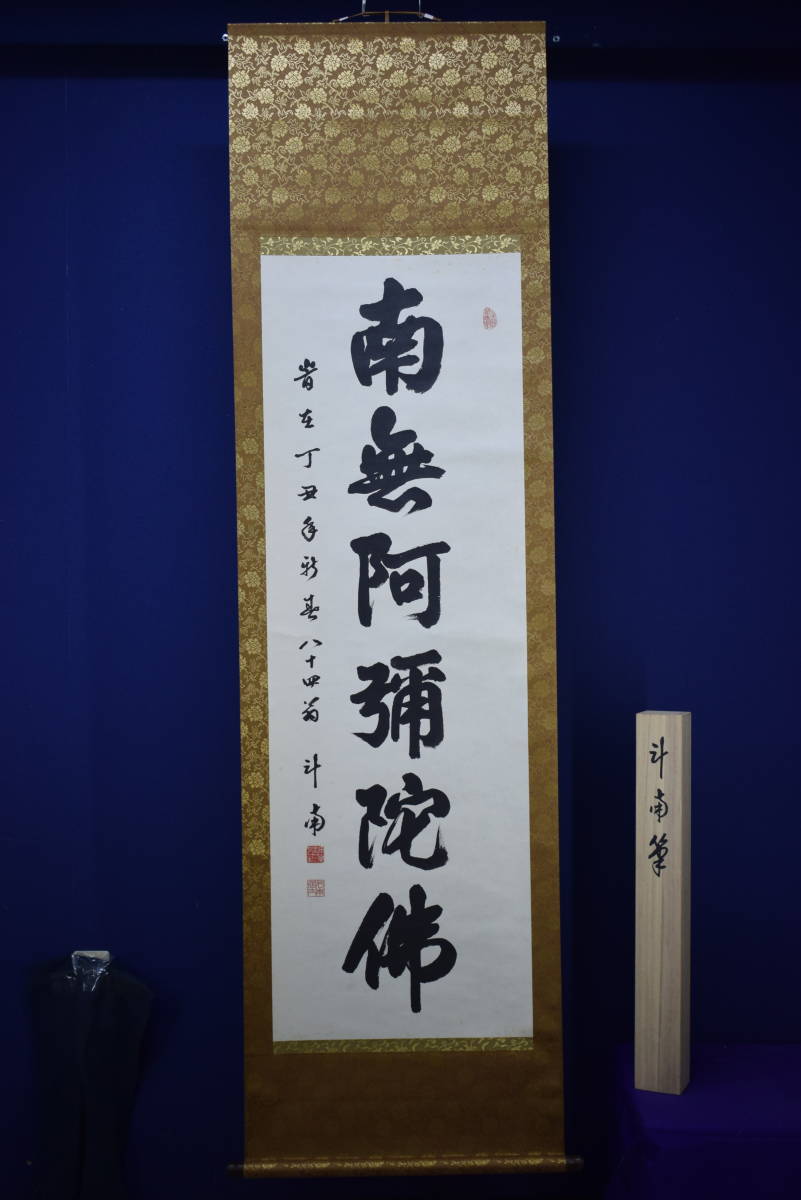 南無阿彌陀佛
旹在丁丑年新春八十四翁 斗南
斗南筆